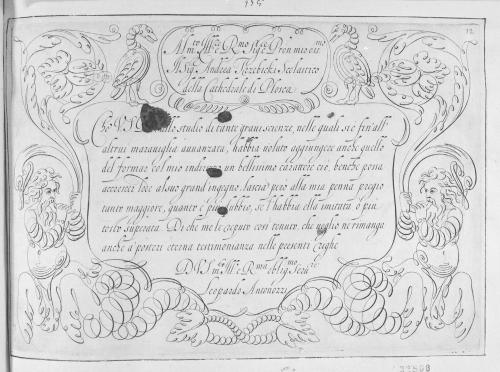 12
Al m.to Ill.re e R.mo Sig.re e Pron mio oss.mo
Il Sig. Andrea Trzebicki Scolastico
della Cathedrale di
Che V.S. allo studio di tante graui scienze, nelle quali si è fin'all'
altrui marauiglia auuanzata, habbia uoluto aggiungere anche quello
del formar col mio indirizzo un bellissimo carattere ciò, benche possa
accrescer loce al suo grand'ingegno, lascia però alla mia penna pregio
tanto maggiore, quanto è più dubbio, se l'habbia ella imitata ò più
tosto superata. Di che me le reputo così tenuto, che uoglio ne rimanga
anche a posteri eterna testimonianza nelle presenti righe
D.V.S. m.to Ill.re e R.ma oblig.mo Seru.re
Leopardo Antonozzi